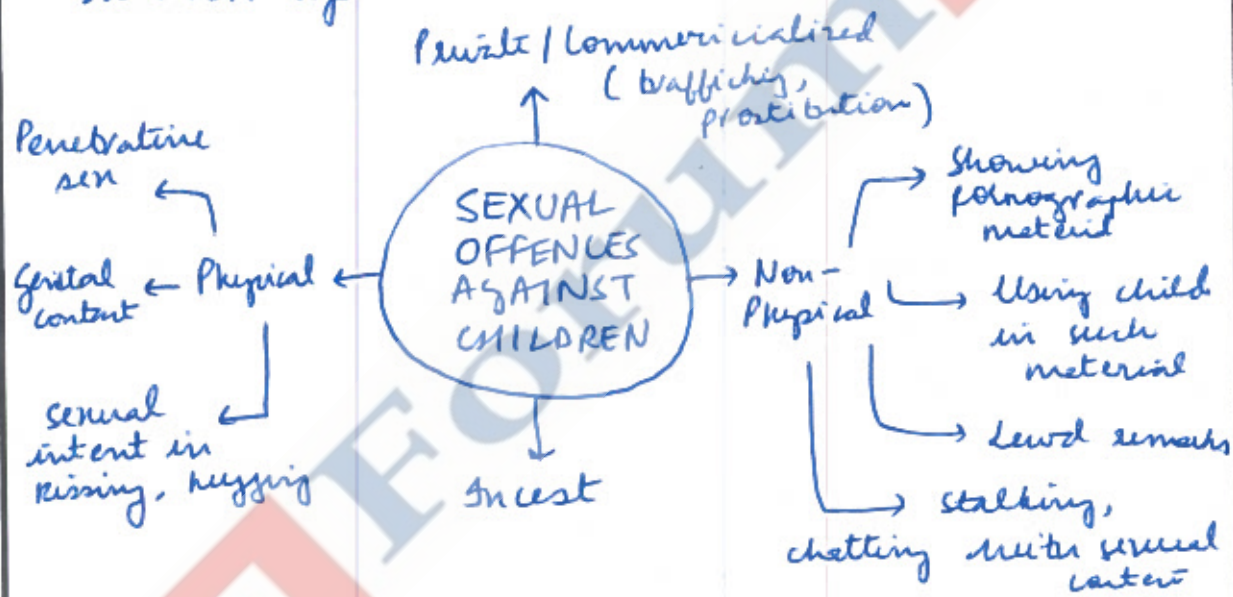 Private / Commericialized
( trafficking,
prostitution )
Penetrative
sex
Genital
contact
Physical
sexual
intent in
kissing, hugging
SEXUAL
OFFENCES
AGAINST
CHILDREN
Incest
Non-
Physical
Showing
pornographic
material
Using child
in such
material
Lewd remarks
Stalking,
chatting with sexual
content
Forum